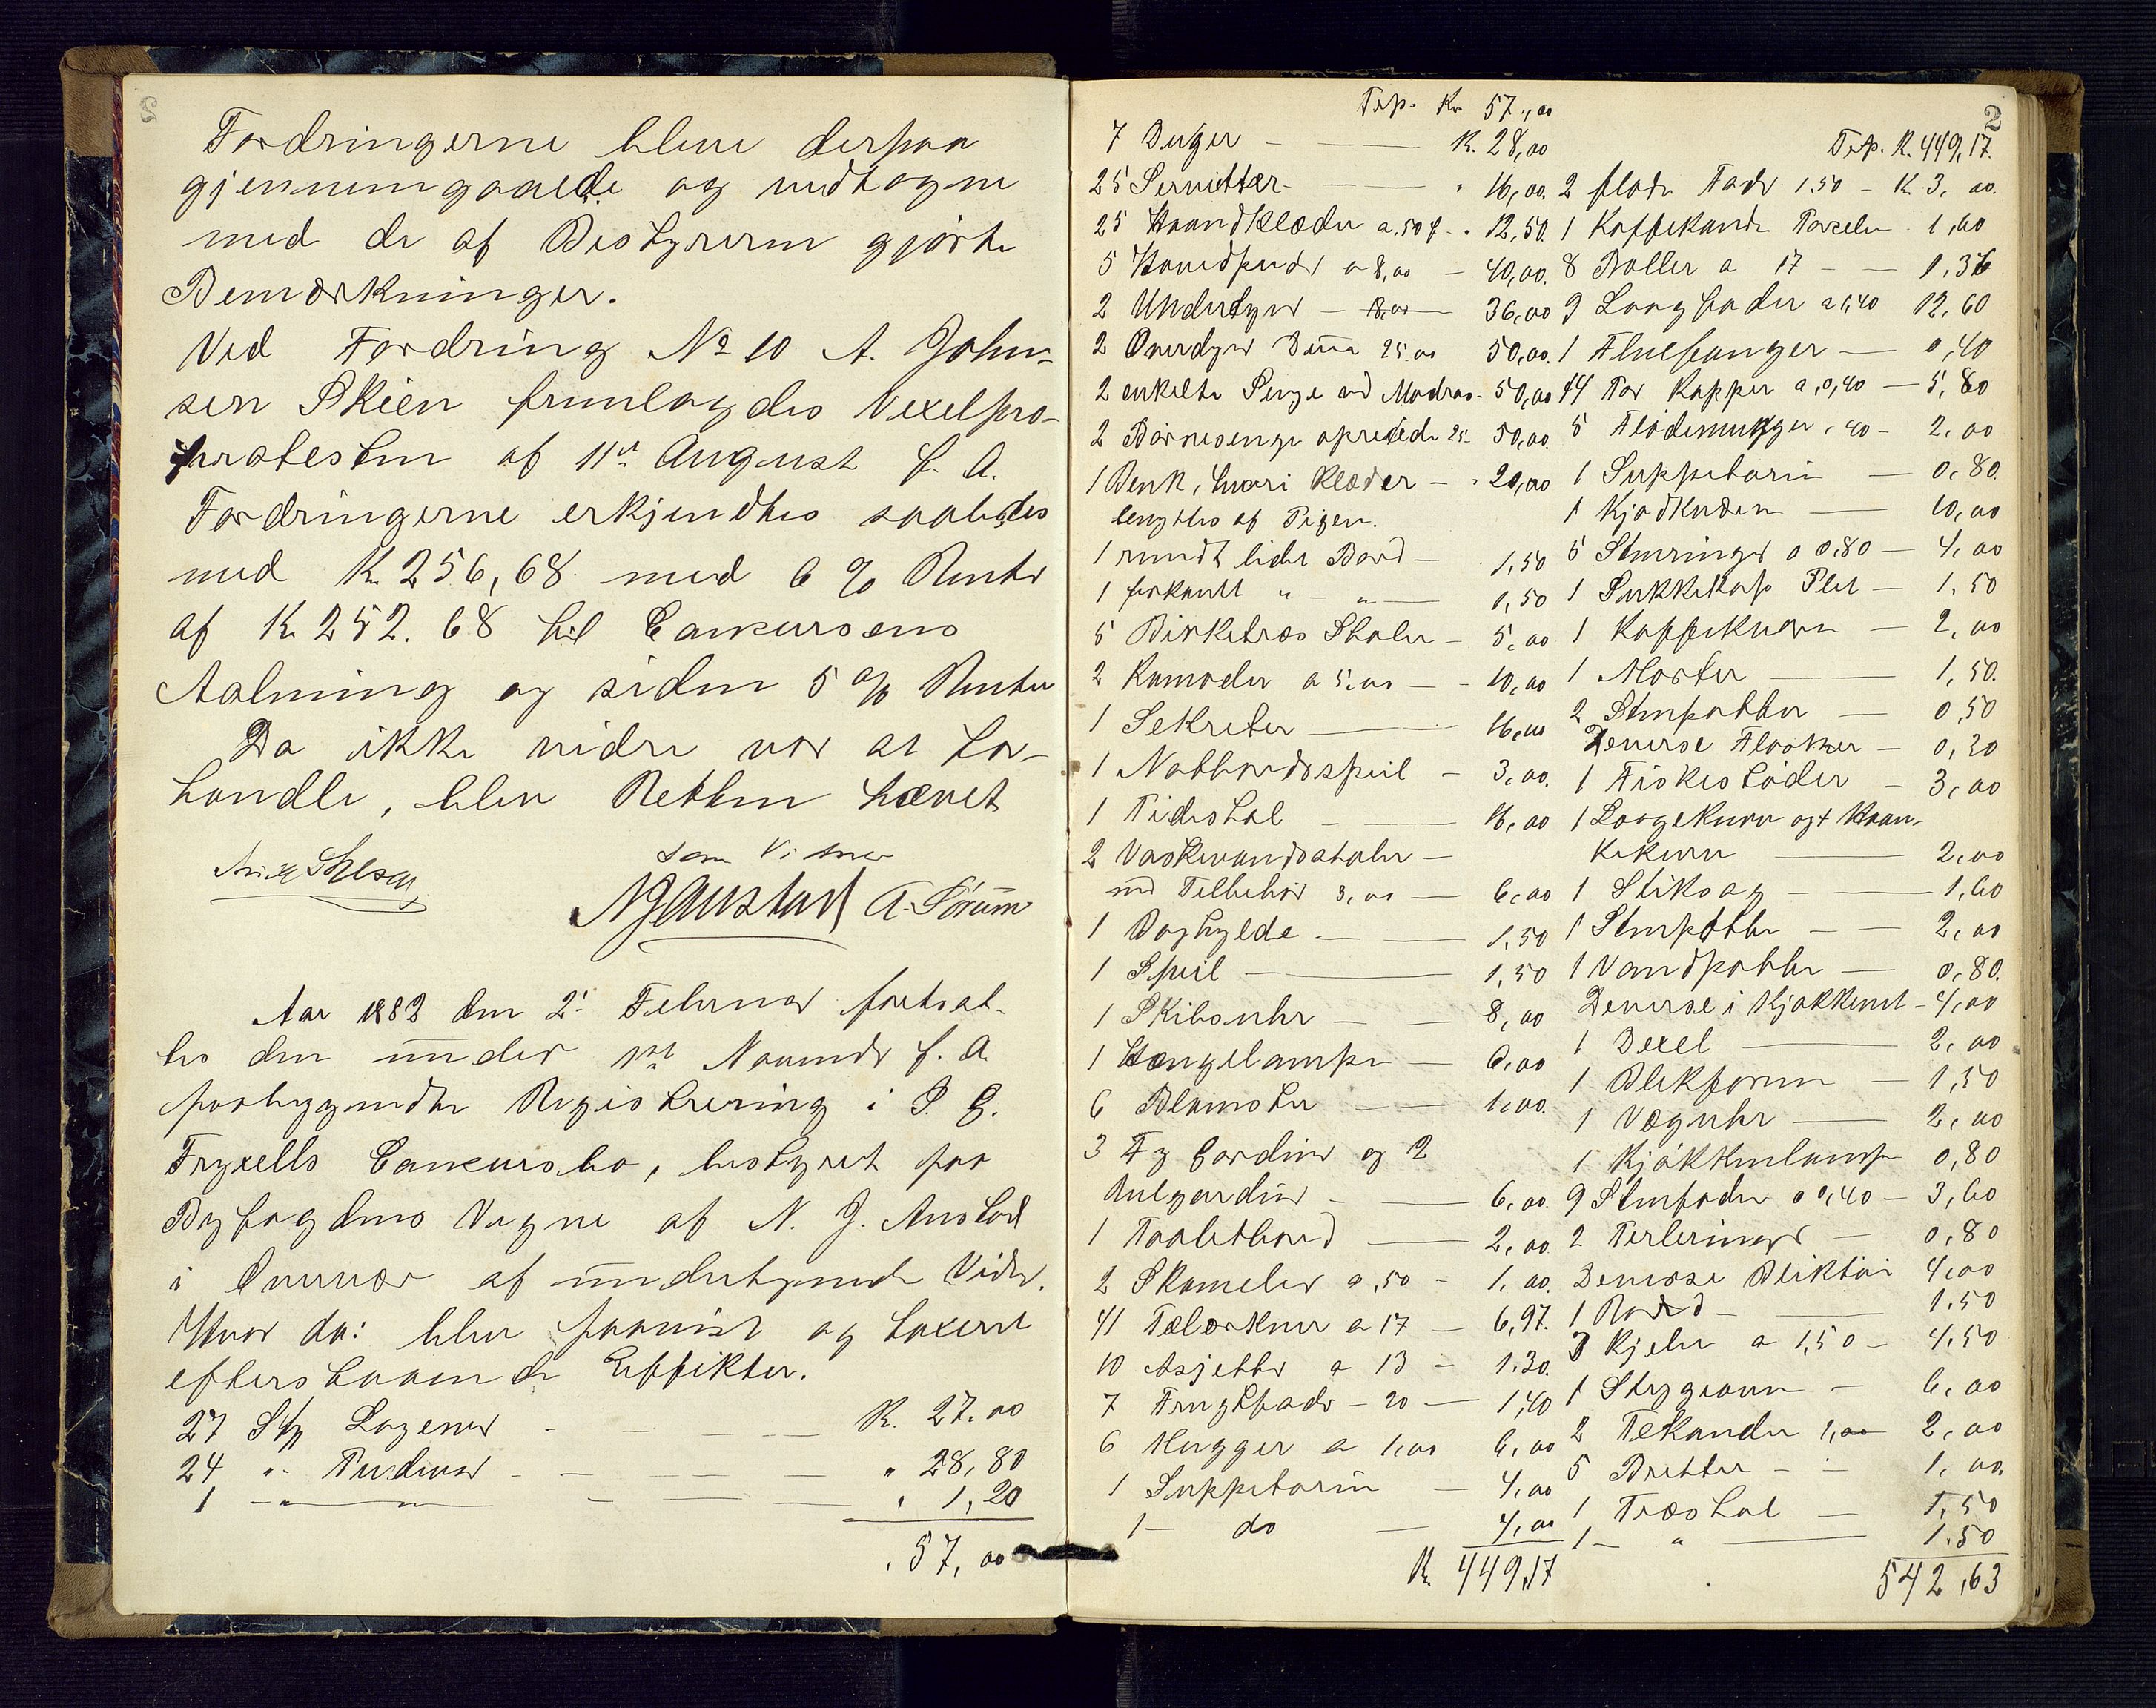 Fordringerne bleve derpaa
gjennemgaaede og vedtagne
med de af Bestyreren gjørte
Bemærkninger.
Ved Fordring No 10 A. John-
sen Skien fremlagdes Vexelpro-
protesten af 11te August f. A.
Fordringerne erkjendtes saaledes
med K. 256,68 med 6 % Renter
af K. 252.68 til Concursens
Aabning og siden 5 % Renter
Da ikke videre var at for-
handle, blev Retten hævet
som Vidner
NJAustad A. Sørum
Aar 1882 den 2. Februar fortsat-
tes den under 1ste Novemb f. A.
paabegyndte Registrering i P. G.
Fryxells Concursbo, bestyret paa
Byfogdens Vegne af N. J. Austad
i Overvær af undertegnede Vidner.
Hvor da: blev paavist og taxeret
efterstaaende Effekter.
27 Stk Lagener - K. 27.00
24 " Pudevar - " 28,80
1 - " - " 1,20
57,00
2
Trp. Kr 57,00
7 Duger - K. 28,00
25 Servietter - " 16,00
25 Haandklæder a 50 ø - 12,50
5 Hovedpuder a 8,00 - 40,00
2 Underdyner - 18,00 36,00
2 Overdyner Duun 25.00 50,00
2 enkelte Senge med Madras - 50,00
2 Børnesenge opredede 25 - 50,00
1 Benk, hvori Klæder - 20,00
benyttes af Pigen.
1 rundt lidet Bord - 1,50
1 firkantt " - " 1,50
5 Birketræs Stoler - 5,00
2 Komoder a 5,00 - 10,00
1 Sekretær - 16,00
1 Natbordsspeil - 3,00
1 Pidestal - 16,00
2 Vaskevandsstoler -
med Tilbehør 3,00 - 6,00
1 Boghylde - 1,50
1 Speil - 1,50
1 Skibsuhr - 8,00
1 Hængelampe - 6,00
6 Blomster - 1,00
3 Fg Gardiner og 2
Rulgardiner - 6,00
1 Toaletbord - 2,00
2 Skameler a ,50 - 1,00
41 Talærkner a 17 - 6,97
10 Asjetter a 13 - 1.30
7 Frugtfade - 20 - 1,40
6 Mugger a 1,00 6,00
1 Suppeterin - 4,00
1 - do - 4,00
K. 449,17
Trp. K. 449,17.
2 flade Fade 1,50 - K 3,00
1 Kaffekande Porcelen 1,60
8 Boller a 17 - 1,36
9 Langfader a 1,40 12,60
1 Fluefanger - 0,40
14 Par Kopper a 0,40 - 5,80
5 Flødemugger ,40 - 2,00
1 Suppeterin - 0,80
1 Kjødkværn - 10,00
5 Stenringer a 0,80 - 4,00
1 Sukkekop Plet - 1.50
1 Kaffekværn - 2,00
1 Morter - 1,50
2 Stenpotter - 0,50
Deverse Flasker - 0,20
1 Fiskestøder - 3,00
1 Laagekurv og 1 Haan-
kekurv - 2,00
1 Stiksag - 1,60
1 Stenpotte - 2,00
1 Vandpotte - 0,80
Deverse i Kjøkkenet - 4,00
1 Dexel - 2,00
1 Blikform - 1,50
1 Veguhr - 2,00
1 Kjøkkenlampe 0,80
9 Stenfader a 0,40 - 3,60
2 Terleriner - 0,80
Deverse Bliktøi 4,00
1 Bord - 1.50
3 Kjeler a 1,50 - 4,50
1 Strygeovn - 6,00
2 Tekander 1,00 2,00
5 Bretter - 1,00
1 Træstol - 1,50
1 - " - 1.50
542,63